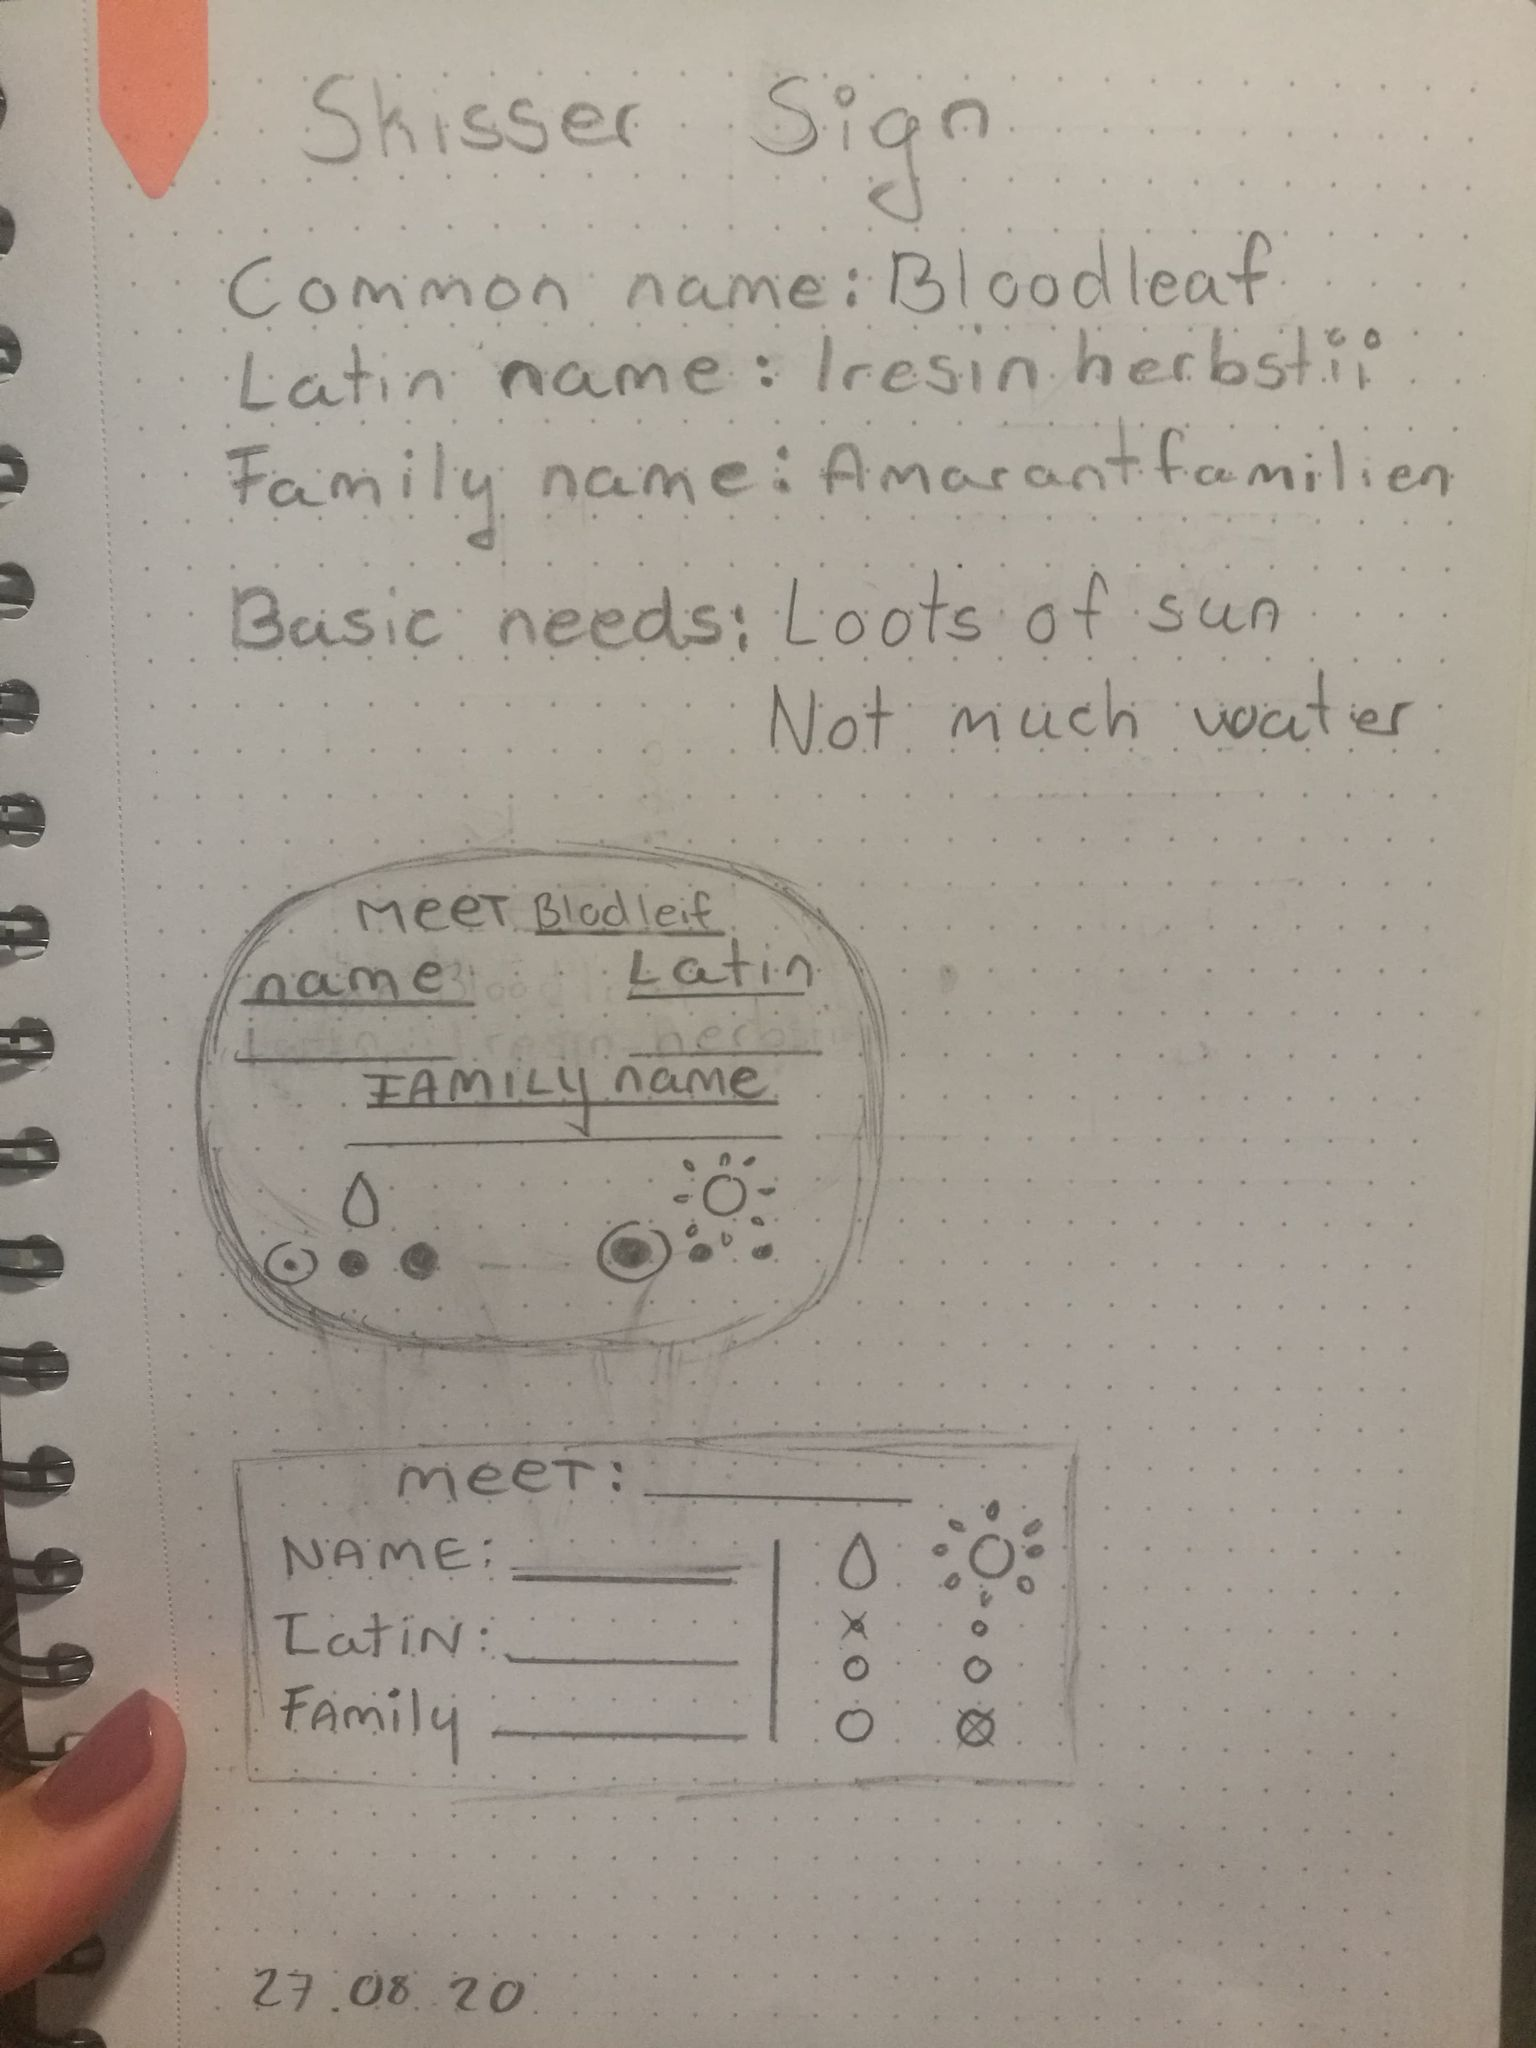 Skisser Sign
Common name: Bloodleaf
Latin name: Iresin herbstii
Family name: Amarantfamilien
Basic needs: Loots of sun
Not much water
MEET Blodleif
name Latin
FAMILY name
MEET:
NAME:
LatiN:
FAmily
27.08.20